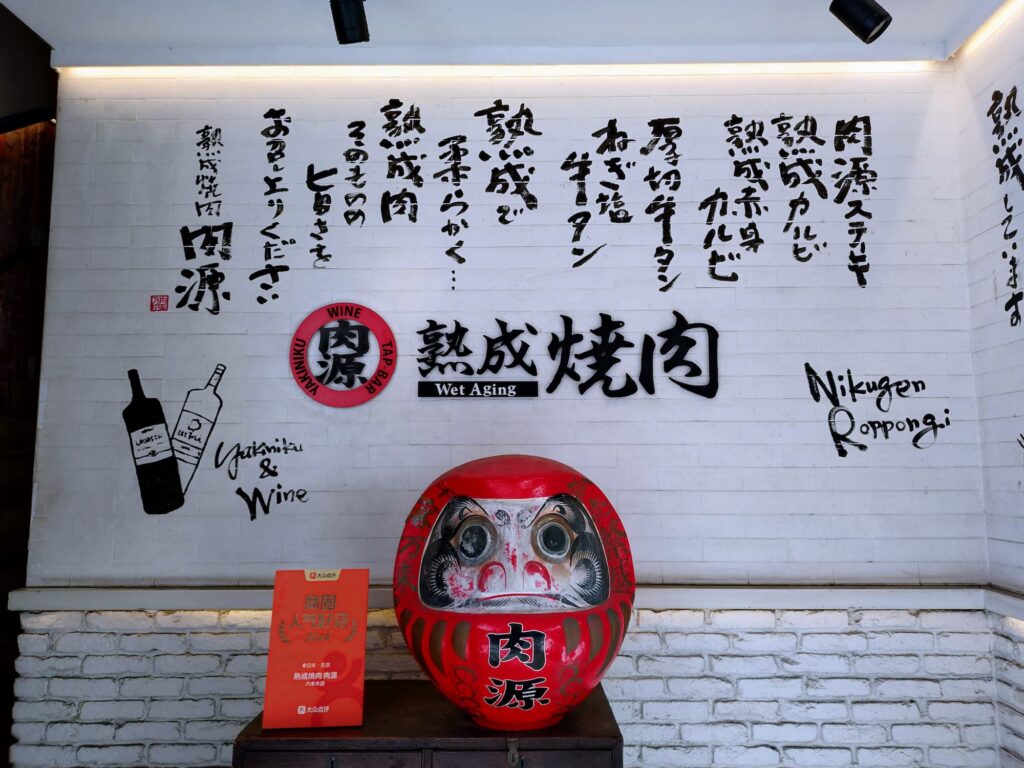 肉源ステーキ
熟成カルビ
熟成赤身
カルビ
厚切牛タン
ねぎ塩
牛タン
熟成で
柔らかく…
熟成肉
そのものの
旨さを
お召し上りください
熟成焼肉 肉源
熟成しています
WINE
YAKINIKU
TAP-BAR
肉源
熟成焼肉
Wet Aging
Nikugen
Roppongi
Yakiniku
&
Wine
大众点评
商圈
人气好店
2024
日本·东京
熟成焼肉 肉源
六本木店
大众点评
肉
源